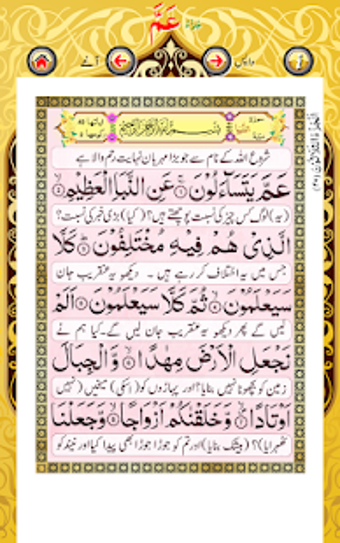 پارہ عَمَّ
آگے
واپس
بِسْمِ اللّٰهِ الرَّحْمٰنِ الرَّحِيْمِ
شروع اللہ کے نام سے جو بڑا مہربان نہایت رحم والا ہے
عَمَّ يَتَسَآءَلُوْنَ ۚ عَنِ النَّبَاِ الْعَظِيْمِ ۙ
(یہ) لوگ کس چیز کی نسبت پوچھتے ہیں؟ (کیا) بڑی خبر کی نسبت؟
الَّذِيْ هُمْ فِيْهِ مُخْتَلِفُوْنَ ؕ كَلَّا
جس میں یہ اختلاف کر رہے ہیں ۔ دیکھو یہ عنقریب جان
سَيَعْلَمُوْنَ ۙ ثُمَّ كَلَّا سَيَعْلَمُوْنَ اَلَمْ
لیں گے پھر دیکھو یہ عنقریب جان لیں گے ۔ کیا ہم نے
نَجْعَلِ الْاَرْضَ مِهٰدًا ۙ وَّالْجِبَالَ
زمین کو بچھونا نہیں بنایا؟ اور پہاڑوں کو (اسکی) میخیں (نہیں
اَوْتَادًا ۙ وَّخَلَقْنٰكُمْ اَزْوَاجًا ۙ وَّجَعَلْنَا
ٹھہرایا)؟ (بیشک بنایا) اور تم کو جوڑا جوڑا بھی پیدا کیا اور نیند کو